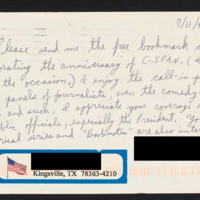 7/11/
Please send me the free bookmark
rating the anniversary of C-SPAN. (
the occasion.) I enjoy the call-in
panels of journalists, even the comedy
and such. I appreciate your coverage
blic officials, especially the President. Your
rical series and "Booknotes" are also inter
Kingsville, TX 78363-4210